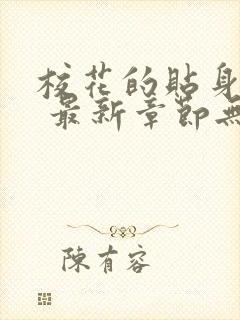 校花的貼身
最新章節無
陳有容